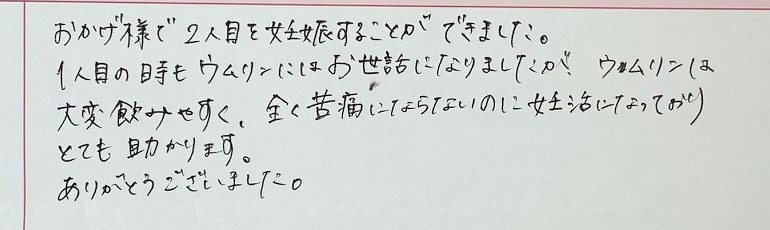 おかげ様で2人目を妊娠することができました。
1人目の時もウムリンにはお世話になりましたが、ウムリンは
大変飲みやすく、全く苦痛にならないのに妊活になっており
とても助かります。
ありがとうございました。